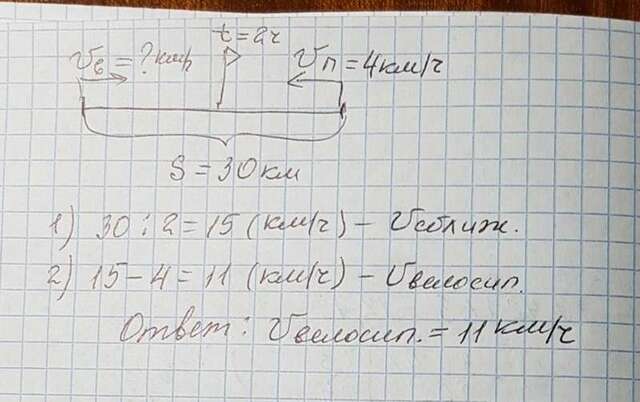 t = 2ч
Vв = ? км/ч Vп = 4 км/ч
S = 30 км
1) 30 : 2 = 15 (км/ч) – Vсближ.
2) 15 – 4 = 11 (км/ч) – Vвелосип.
Ответ: Vвелосип. = 11 км/ч